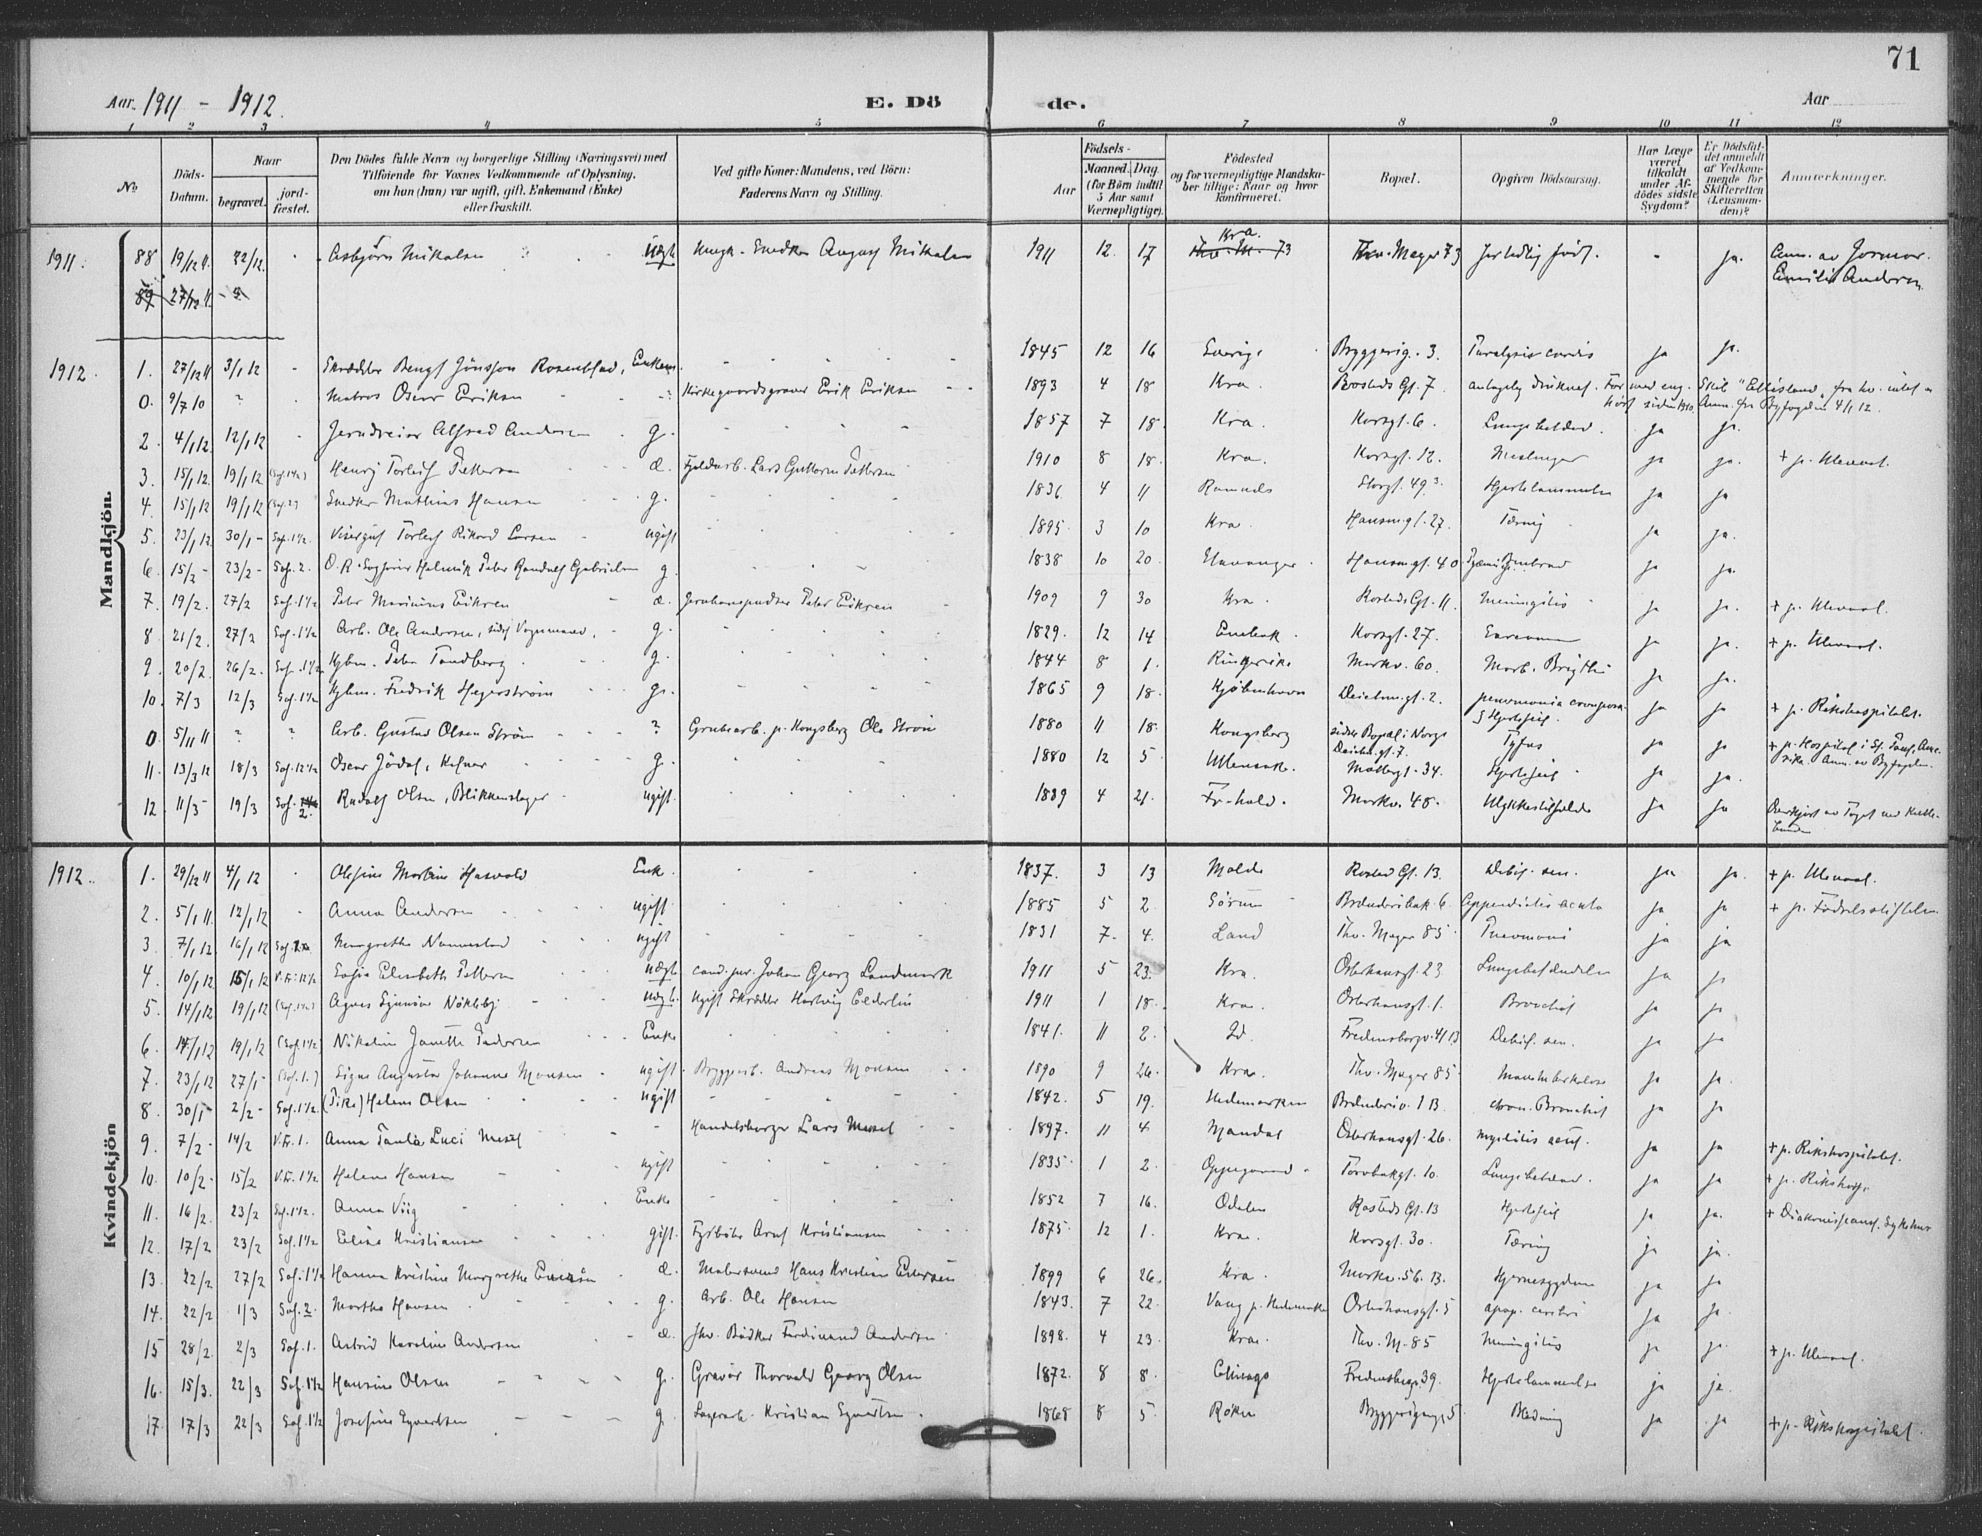 71
Aar 1911 - 1912. E. Dö -de. Aar
1 2 3 4 5 6 7 8 9 10 11 12
No. Döds-Datum. Naar begravet. jord-fæstet. Den Dödes fulde Navn og borgerlige Stilling (Næringsvei) med Tilföiende for Voxnes Vedkommende af Oplysning, om han (hun) var ugift, gift, Enkemand (Enke) eller fraskilt. Ved gifte Koner: Mandens, ved Börn: Faderens Navn og Stilling. Födsels- Aar Maaned. Dag. (for Börn indtil 5 Aar samt Værnepligtige). Födested og for værnepligtige Mandskaber tillige: Naar og hvor konfirmeret. Bopæl. Opgiven Dödsaarsag. Har Læge været tilkaldt under Afdödes sidste Sygdom? Er Dödsfaldet anmeldt af Vedkommende for Skifteretten (Lensmanden)? Anmærkninger.
Mandkjön.
1911. 88 19/12 11. 22/12. Asbjørn Mikalsen Uægt. Smedker August Mikalsen 1911 12. 17 Kra. Thv. Meyer 73 født. - ja. Anm. av Jormor. Emilie Andersen
89 27/12 11.
1912. 1. 27/12 11 3/1 12 Skrædder Bengt Jönsson Rosenblad, Enkem. 1845 12 16 Sverige Byggerig. 3. Paralysis cordis ja ja.
0. 9/7 10 ? Matros Oscar Eriksen Kirkegaardsgraver Erik Eriksen 1893 4 18 Kra. Rosteds Gt. 7. antagelig druknet. Før med eng. Skib "Ellisland" fra hv. intet er hørt siden 1910. Anm. fra Byfogden 4/1 12.
2. 4/1 12. 12/1 12 Jerndreier Alfred Andersen g. 1857 7 18. Kra. Korsgt. 6. Lungebetænd. ja ja.
3. 15/1 12. 19/1 12 Henry Torleif Pettersen æ. Lars Guttorm Pettersen 1910 8 18. Kra. Korsgt. 12. Meslinger ja ja. + p. Ulevaal.
4. 15/1 12 19/1 12 Snedker Mathias Hansen g. 1836 4 11 Ramnes Storgt. 49 Hjertelammelse ja ja
5. 23/1 12. 30/1 - Sof. 1 1/2. Visergut Torleif Rikard Larsen ugift 1895. 3 10 Kra. Hansmgt. 27. Tæring ja ja.
6. 15/2 - 23/2 - Sof. 2. O.R. Sagfører Helmik Peter Randulf Gabrielsen g. 1838 10 20. Stavanger. Hansmgt. 40 ja ja.
7. 19/2. 27/2 Sof. 1 1/2 Peter Marinius Eikren æ. Peter Eikren 1909 9 30 Kra. Rosteds Gt. 11. Meningitis ja ja. + p. Ulevaal.
8 21/2. 27/2 Sof. 1 1/2 Arb. Ole Andersen, sidst Vognmand, g. 1829. 12 14 Enebak. Korsgt. 27. ja ja. + p. Ulevaal.
9. 20/2. 26/2. Sof. 1 1/2 Kjbm. Peter Tandberg g. 1844 8 1. Ringerike Markv. 60. Morb. Brigthi ja ja.
10. 7/3 12/3 Sof. 1 1/2 Kjbm. Fredrik Hegerström g. 1865 9 18. Kjøbenhavn Deichm. gt. 2. pneumonia crouposa & Hjertefeil. ja ja + p. Rikshospitalet.
0. 5/11 11 ? ? Arb. Gustav Olsen Strøm ? Grubearb. p. Kongsberg Ole Strøm 1880 11 18. Kongsberg sidste Bopæl i Norge Deichm. gt. 7. Tyfus ja ja + p. Hospital i St. Paul, Amerika. Anm. av Byfogden.
11. 13/3 12 18/3 Sof. 12 1/2 Oscar Jödal, Kelner g. 1880 12 5. Ullensak. Møllergt. 34. Hjertefeil ja ja.
12. 11/3 - 19/3 Sof. 2. Rudolf Olsen, Blikkenslager ugift. 1889 4 21. Fr-hald. Markv. 48. Ulykkestilfælde ja ja Overkjørt av Toget ved
Kvindekjön
1912.. 1. 29/12 11 4/1 12 Olefine Martine Hasvold Enk. 1837. 3 13 Molde Rosted Gt. 13. Debil. sen. ja ja. + p. Ulevaal.
2. 5/1 11. 12/1 12 Anna Andersen ugift 1885 5 2 Sørum Brænderibak. 6 Appendicitis acuta ja ja + p. Fødselsstiftelsen.
3. 7/1 12. 16/1 12 Margrethe Nannestad ugift 1831 7. 4. Land Thv. Meyer 85 Pneumoni ja ja
4 10/1 12. 15/1 12 Sofie Elisabeth Pettersen uægt. cand. jur. Johan Georg Landmark 1911 5 23. Kra. Osterhausgt. 23 ja ja
5. 14/1 12 19/1 12 Agnes Nökleby uægt. Ugift Skrædder Hartvig Cederlin 1911 1 18. Kra. Osterhausgt. 1. Bronchit ja ja
6. 14/1 12 19/1 12 (Sof. 1 1/2) Nikoline Janette Pedersen Enke 1841. 11 2. Id. Fredensborgv. 41 B Debil. sen. ja ja
7. 23/1 12 27/1 - (Sof. 1.) Signe Augusta Johanne Monsen ugift. Bryggearb. Andreas Monsen 1890 9 26. Kra. Thv. Meyer 85. ja ja.
8. 30/1 - 2/2 - Sof. 1 1/2. (Pike) Helene Olsen ugift 1842. 5 19. Hedemarken Brænderiv. 1 B. chron. Bronchit ja ja
9. 7/2 - 14/2 V.Fr. 1. Anna Paula Luci Mesel Handelsborger Lars Mesel 1897. 11 4 Mandal Osterhausgt. 26. myelitis acut. ja ja + p. Rikshospitalet.
10. 10/2 - 15/2 V.Fr. 1 1/2 Helene Hansen ugift 1835. 1 2. Oppegaard Torvbakgt. 10. Lungebetænd. ja ja + p. Rikshosp.
11. 16/2. 23/2 Sof. 1 1/2. Anna Viig Enke 1852 7 16. Odalen Rosteds Gt. 13 Hjertefeil ja ja. + Diakonisseanst. Sykehus
12. 17/2 23/2 Sof. 1 1/2 Eline Kristiansen gift. Fyrbøter Arnt Kristiansen 1875. 12 1. Kra. Korsgt. 30. Tæring ja ja.
13. 22/2 27/2 Sof. 1 1/2 Hanna Kristine Margrethe æ. Malersvend Hans Kristian 1899 6 26. Kra. Markv. 56. B. Hjernesygdom ja ja
14. 22/2 1/3 Sof. 2. Martha Hansen g. Arb. Ole Hansen 1843. 7 22. Vang p. Hedemarken Osterhausgt. 5 apop. cerebri ja ja.
15 28/2. 2/3 Sof. 1. Astrid Karoline Andersen æ. fhv. Bødker Ferdinand Andersen. 1898. 4 23. Kra. Thv. M. 85 Meningitis ja ja. + p. Ulevaal.
16. 15/3. 22/3 Sof. 1 1/2 Hansine Olsen g. Gravør Thorvald Georg Olsen 1872. 8 8. Chicago Fredensborgv. 39. Hjertelammelse ja ja.
17. 17/3 22/3 Sof. 1 1/2 Josefine Syvertsen g. Lagerarb. Kristian Syvertsen. 1868 8 5. Røken Byggerigaug. 5 Blødning ja ja + p. Rikshospitalet.